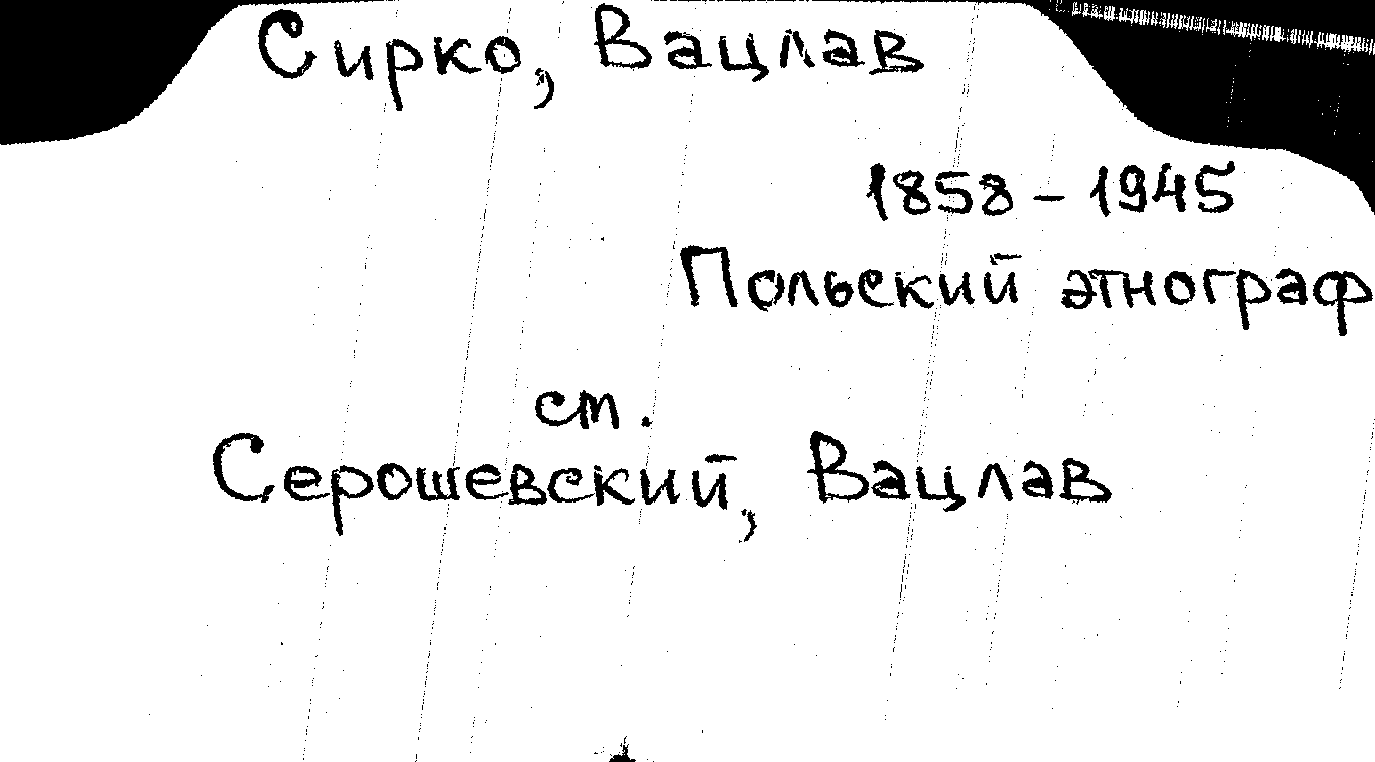 Сирко, Вацлав
1858 - 1945
Польский этнограф
см.
Серошевский, Вацлав